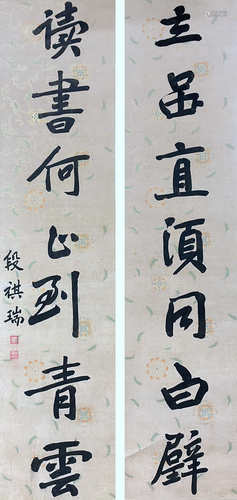 立品直須同白璧
讀書何止到青雲
段祺瑞